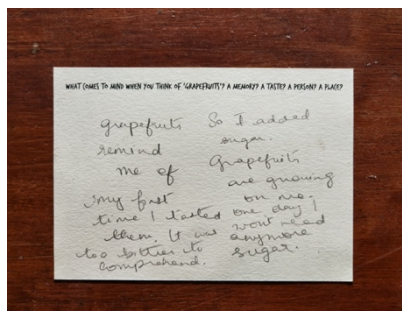 WHAT COMES TO MIND WHEN YOU THINK OF 'GRAPEFRUITS'? A MEMORY? A TASTE? A PERSON? A PLACE?
grapefruits
remind
me of
my first
time I tasted
them. It was
too bitter to
comprehend.
So I added
sugar.
Grapefruits
are growing
on me;
one day I
wont need
anymore
sugar.